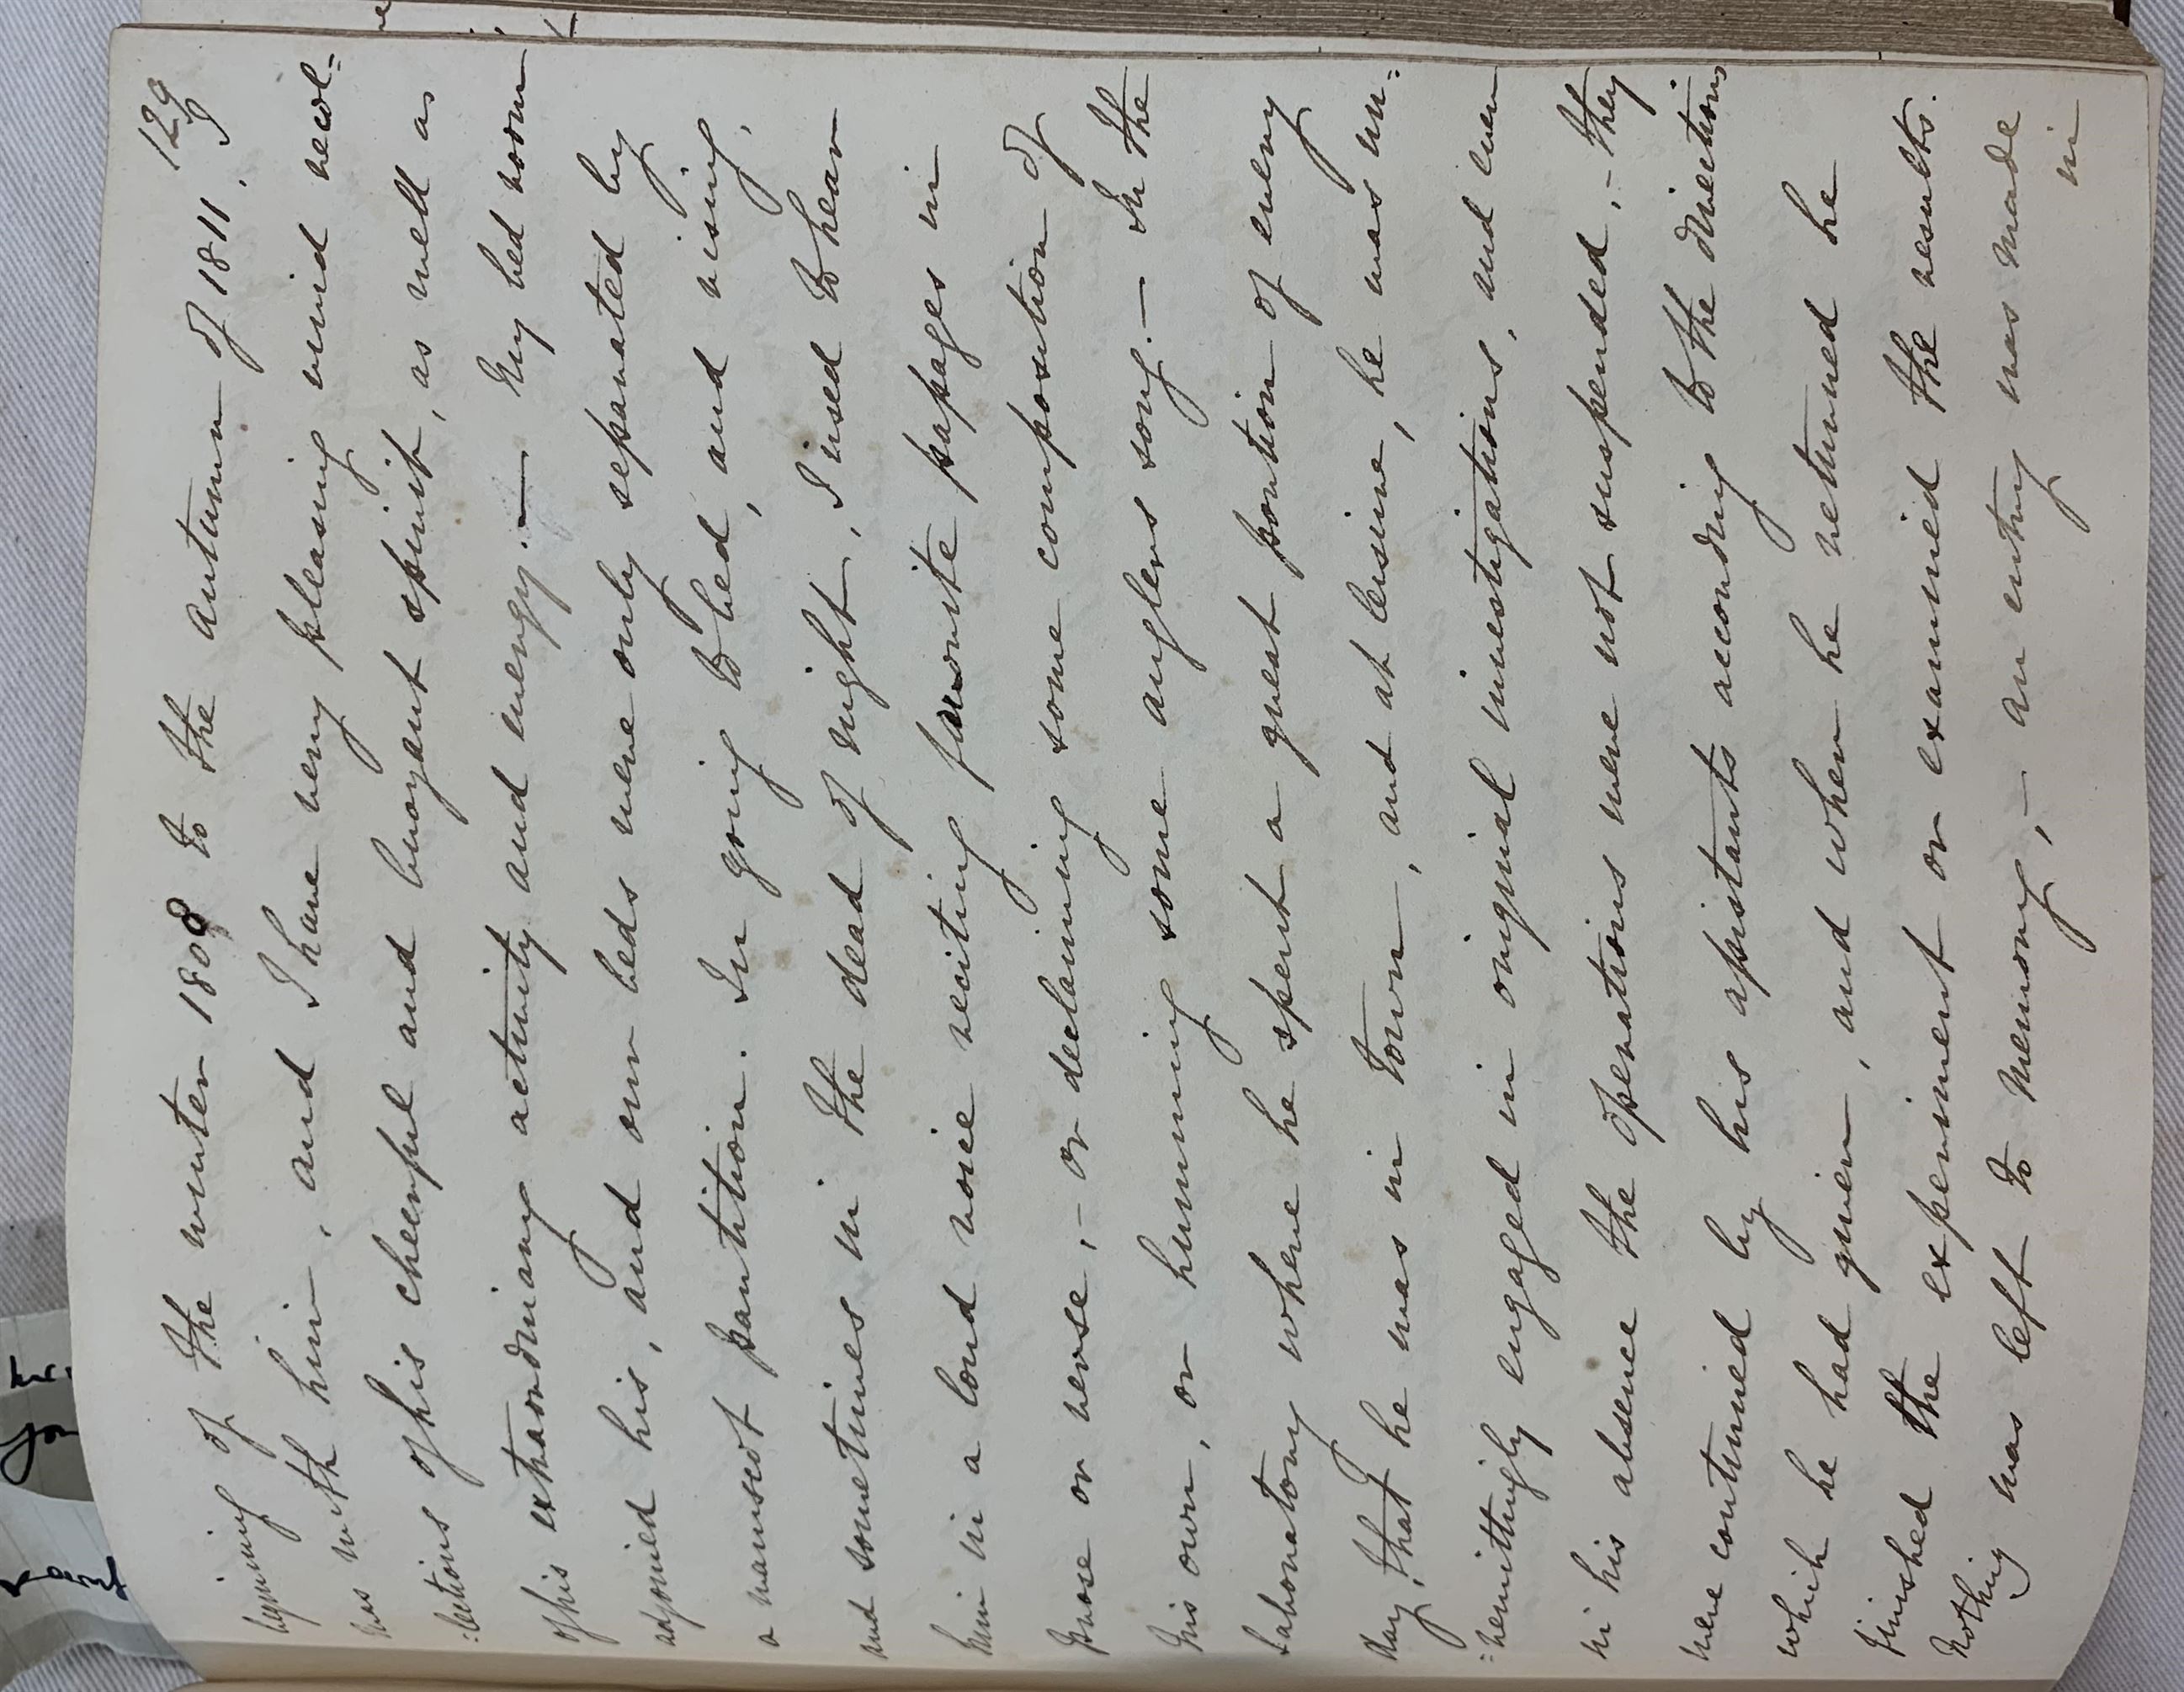 129
beginning of the winter 1808 to the autumn of 1811. I
was with him, and I have very pleasing vivid recol=
:lections of his cheerful and buoyant spirit, as well as
of his extraordinary activity and energy. — My bed room
adjoined his, and our beds were only separated by
a wainscot partition. In going to bed, and rising,
and sometimes in the dead of night, I used to hear
him in a loud voice reciting favourite passages in
prose or verse, – or declaiming some composition of
his own, or humming some anglers song. — In the
Laboratory where he spent a great portion of every
day, that he was in town, and at leisure, he was un:
=remittingly engaged in original investigations, and even
in his absence the operations were not suspended, – they
were continued by his assistants according to the directions
which he had given, and when he returned he
finished the experiment or examined the results.
Nothing was left to memory, – an entry was made
in